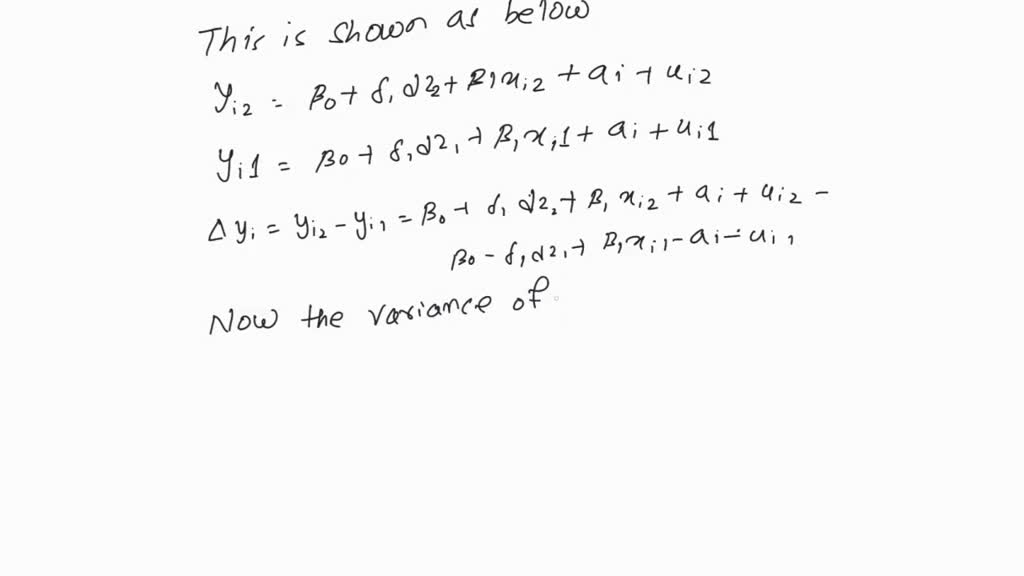 This is shown as below
Yi2 = β0 + δ1 d22 + β1 xi2 + ai + ui2
Yi1 = β0 + δ1 d21 + β1 xi1 + ai + ui1
Δ yi = yi2 - yi1 = β0 + δ1 d22 + β1 xi2 + ai + ui2 -
β0 - δ1 d21 + β1 xi1 - ai - ui1
Now the variance of